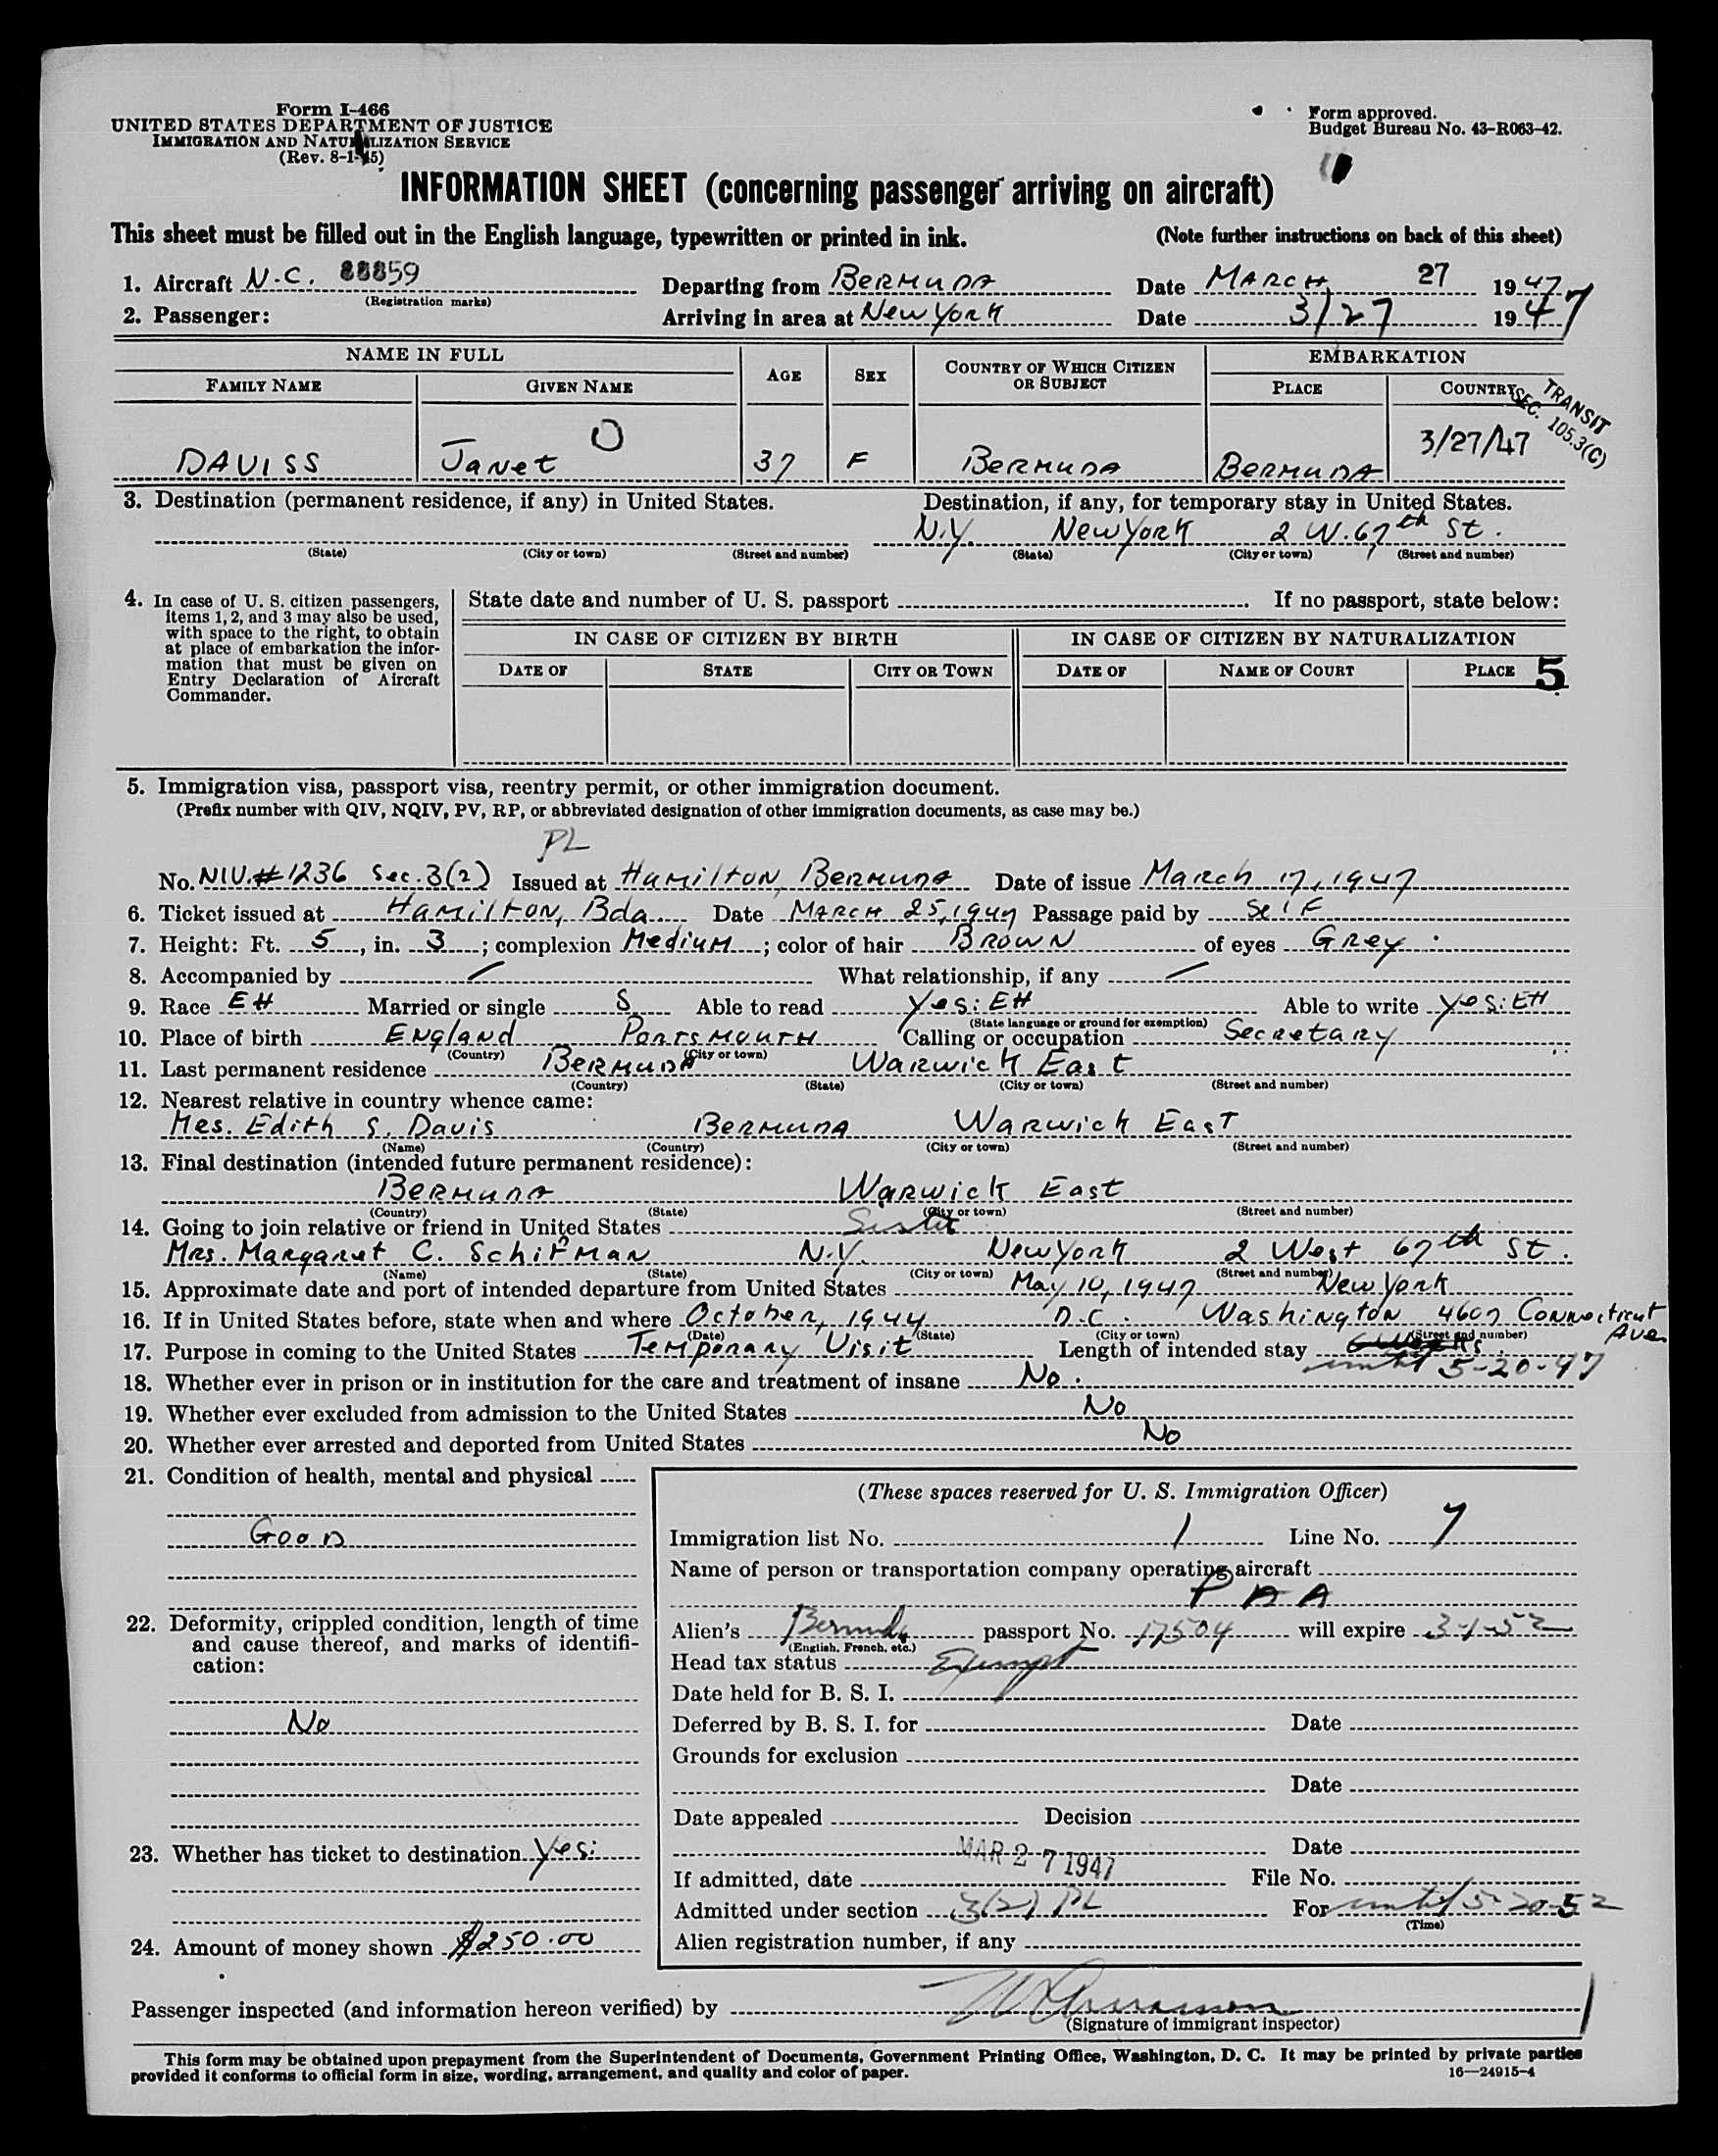 Form I-466
UNITED STATES DEPARTMENT OF JUSTICE
IMMIGRATION AND NATURALIZATION SERVICE
(Rev. 8-1-45)
Form approved.
Budget Bureau No. 43-R063-42.
INFORMATION SHEET (concerning passenger arriving on aircraft)
This sheet must be filled out in the English language, typewritten or printed in ink. (Note further instructions on back of this sheet)
1. Aircraft N.C. 88859 Departing from BERMUDA Date MARCH 27 1947
(Registration marks)
2. Passenger: Arriving in area at New York Date 3/27 1947
NAME IN FULL AGE SEX COUNTRY OF WHICH CITIZEN OR SUBJECT EMBARKATION
FAMILY NAME GIVEN NAME PLACE COUNTRY
TRANSIT
SEC. 105.3(C)
DAVISS Janet O 37 F BERMUDA BERMUDA 3/27/47
3. Destination (permanent residence, if any) in United States. Destination, if any, for temporary stay in United States.
N.Y. New York 2 W. 67th St.
(State) (City or town) (Street and number) (State) (City or town) (Street and number)
4. In case of U. S. citizen passengers, items 1, 2, and 3 may also be used, with space to the right, to obtain at place of embarkation the information that must be given on Entry Declaration of Aircraft Commander.
State date and number of U. S. passport If no passport, state below:
IN CASE OF CITIZEN BY BIRTH IN CASE OF CITIZEN BY NATURALIZATION
DATE OF STATE CITY OR TOWN DATE OF NAME OF COURT PLACE 5
5. Immigration visa, passport visa, reentry permit, or other immigration document.
(Prefix number with QIV, NQIV, PV, RP, or abbreviated designation of other immigration documents, as case may be.)
PL
No. NIV.#1236 Sec.3(2) Issued at Hamilton, Bermuda Date of issue March 17, 1947
6. Ticket issued at Hamilton, Bda. Date MARCH 25, 1947 Passage paid by Self
7. Height: Ft. 5, in. 3; complexion Medium; color of hair BROWN of eyes Grey.
8. Accompanied by — What relationship, if any —
9. Race EH Married or single S Able to read Yes: EH Able to write Yes: EH
(State language or ground for exemption)
10. Place of birth England PORTSMOUTH Calling or occupation Secretary
(Country) (City or town)
11. Last permanent residence BERMUDA Warwick East
(Country) (State) (City or town) (Street and number)
12. Nearest relative in country whence came:
Mrs. Edith S. Davis BERMUDA Warwick East
(Name) (Country) (City or town) (Street and number)
13. Final destination (intended future permanent residence):
BERMUDA Warwick East
(Country) (State) (City or town) (Street and number)
14. Going to join relative or friend in United States Sister
Mrs. Margaret C. Schifman N.Y. New York 2 West 67th St.
(Name) (State) (City or town) (Street and number)
15. Approximate date and port of intended departure from United States May 10, 1947 New York
16. If in United States before, state when and where October, 1944 D.C. Washington 4607 Connecticut Ave.
(Date) (State) (City or town) (Street and number)
17. Purpose in coming to the United States Temporary Visit Length of intended stay
until 5-20-47
18. Whether ever in prison or in institution for the care and treatment of insane No.
19. Whether ever excluded from admission to the United States No
20. Whether ever arrested and deported from United States No
21. Condition of health, mental and physical
Good
22. Deformity, crippled condition, length of time and cause thereof, and marks of identification:
No
23. Whether has ticket to destination Yes:
24. Amount of money shown $250.00
(These spaces reserved for U. S. Immigration Officer)
Immigration list No. 1 Line No. 7
Name of person or transportation company operating aircraft
PAA
Alien's Bermuda passport No. 17504 will expire 3-1-52
(English, French, etc.)
Head tax status Exempt
Date held for B. S. I.
Deferred by B. S. I. for Date
Grounds for exclusion
Date
Date appealed Decision
Date
MAR 27 1947
If admitted, date File No.
Admitted under section 3(2) PL For until 5-20-52
(Time)
Alien registration number, if any
Passenger inspected (and information hereon verified) by
(Signature of immigrant inspector)
This form may be obtained upon prepayment from the Superintendent of Documents, Government Printing Office, Washington, D. C. It may be printed by private parties
provided it conforms to official form in size, wording, arrangement, and quality and color of paper. 16—24915-4